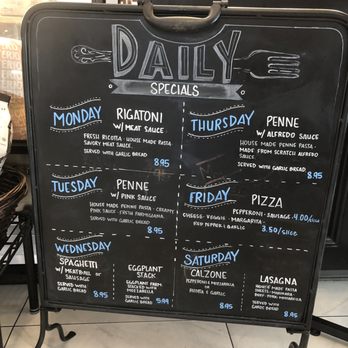 DAILY
SPECIALS
MONDAY
RIGATONI
W/ MEAT SAUCE
FRESH RICOTTA - HOUSE MADE PASTA
SAVORY MEAT SAUCE.
SERVED WITH GARLIC BREAD
8.95
TUESDAY
PENNE
W/ PINK SAUCE
HOUSE MADE PENNE PASTA - CREAMY
PINK SAUCE - FRESH PARMIGIANA.
SERVED WITH GARLIC BREAD
8.95
WEDNESDAY
SPAGHETTI
W/ MEATBALL OR
SAUSAGE
SERVED WITH
GARLIC BREAD
8.95
EGGPLANT
STACK
EGGPLANT PARM
STACKED WITH
MOZZARELLA
SERVED WITH
GARLIC BREAD
5.99
THURSDAY
PENNE
W/ ALFREDO SAUCE
HOUSE MADE PENNE PASTA -
MADE FROM SCRATCH ALFREDO
SAUCE.
SERVED WITH GARLIC BREAD
8.95
FRIDAY
PIZZA
PEPPERONI - SAUSAGE 4.00/slice
CHEESE - VEGGIE - MARGARITA -
RED PEPPER & GARLIC 3.50/slice
SATURDAY
CALZONE
PEPPERONI & MOZZARELLA
OR
RICOTTA & GARLIC
8.95
LASAGNA
HOUSE MADE PASTA
BEEF - PORK
8.95